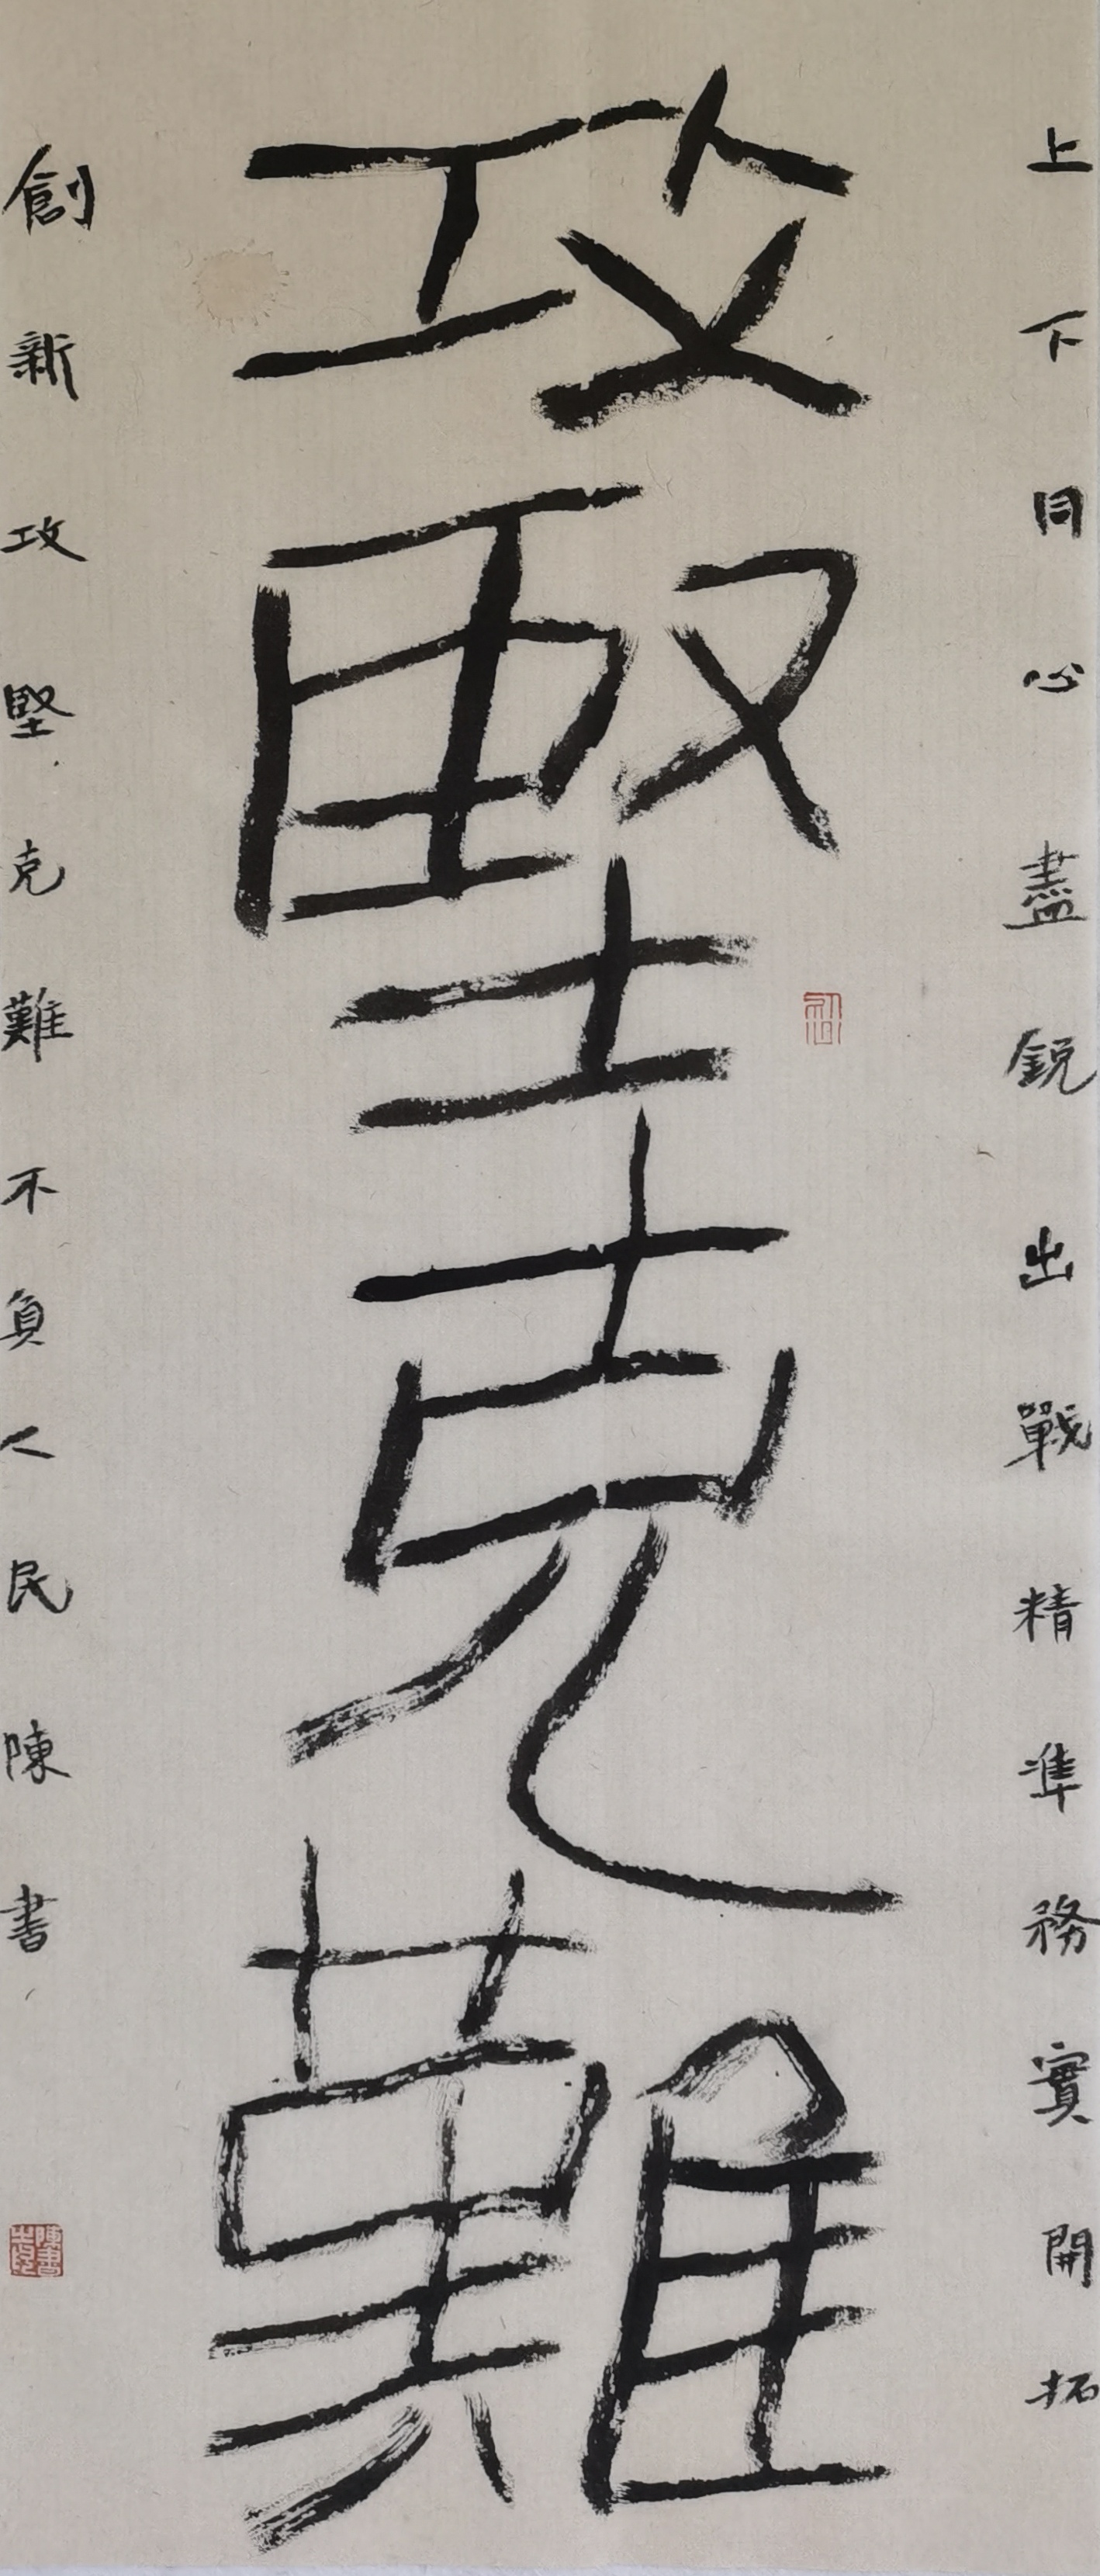 上下同心盡銳出戰精準務實開拓
攻堅克難
創新攻堅克難不負人民陳書